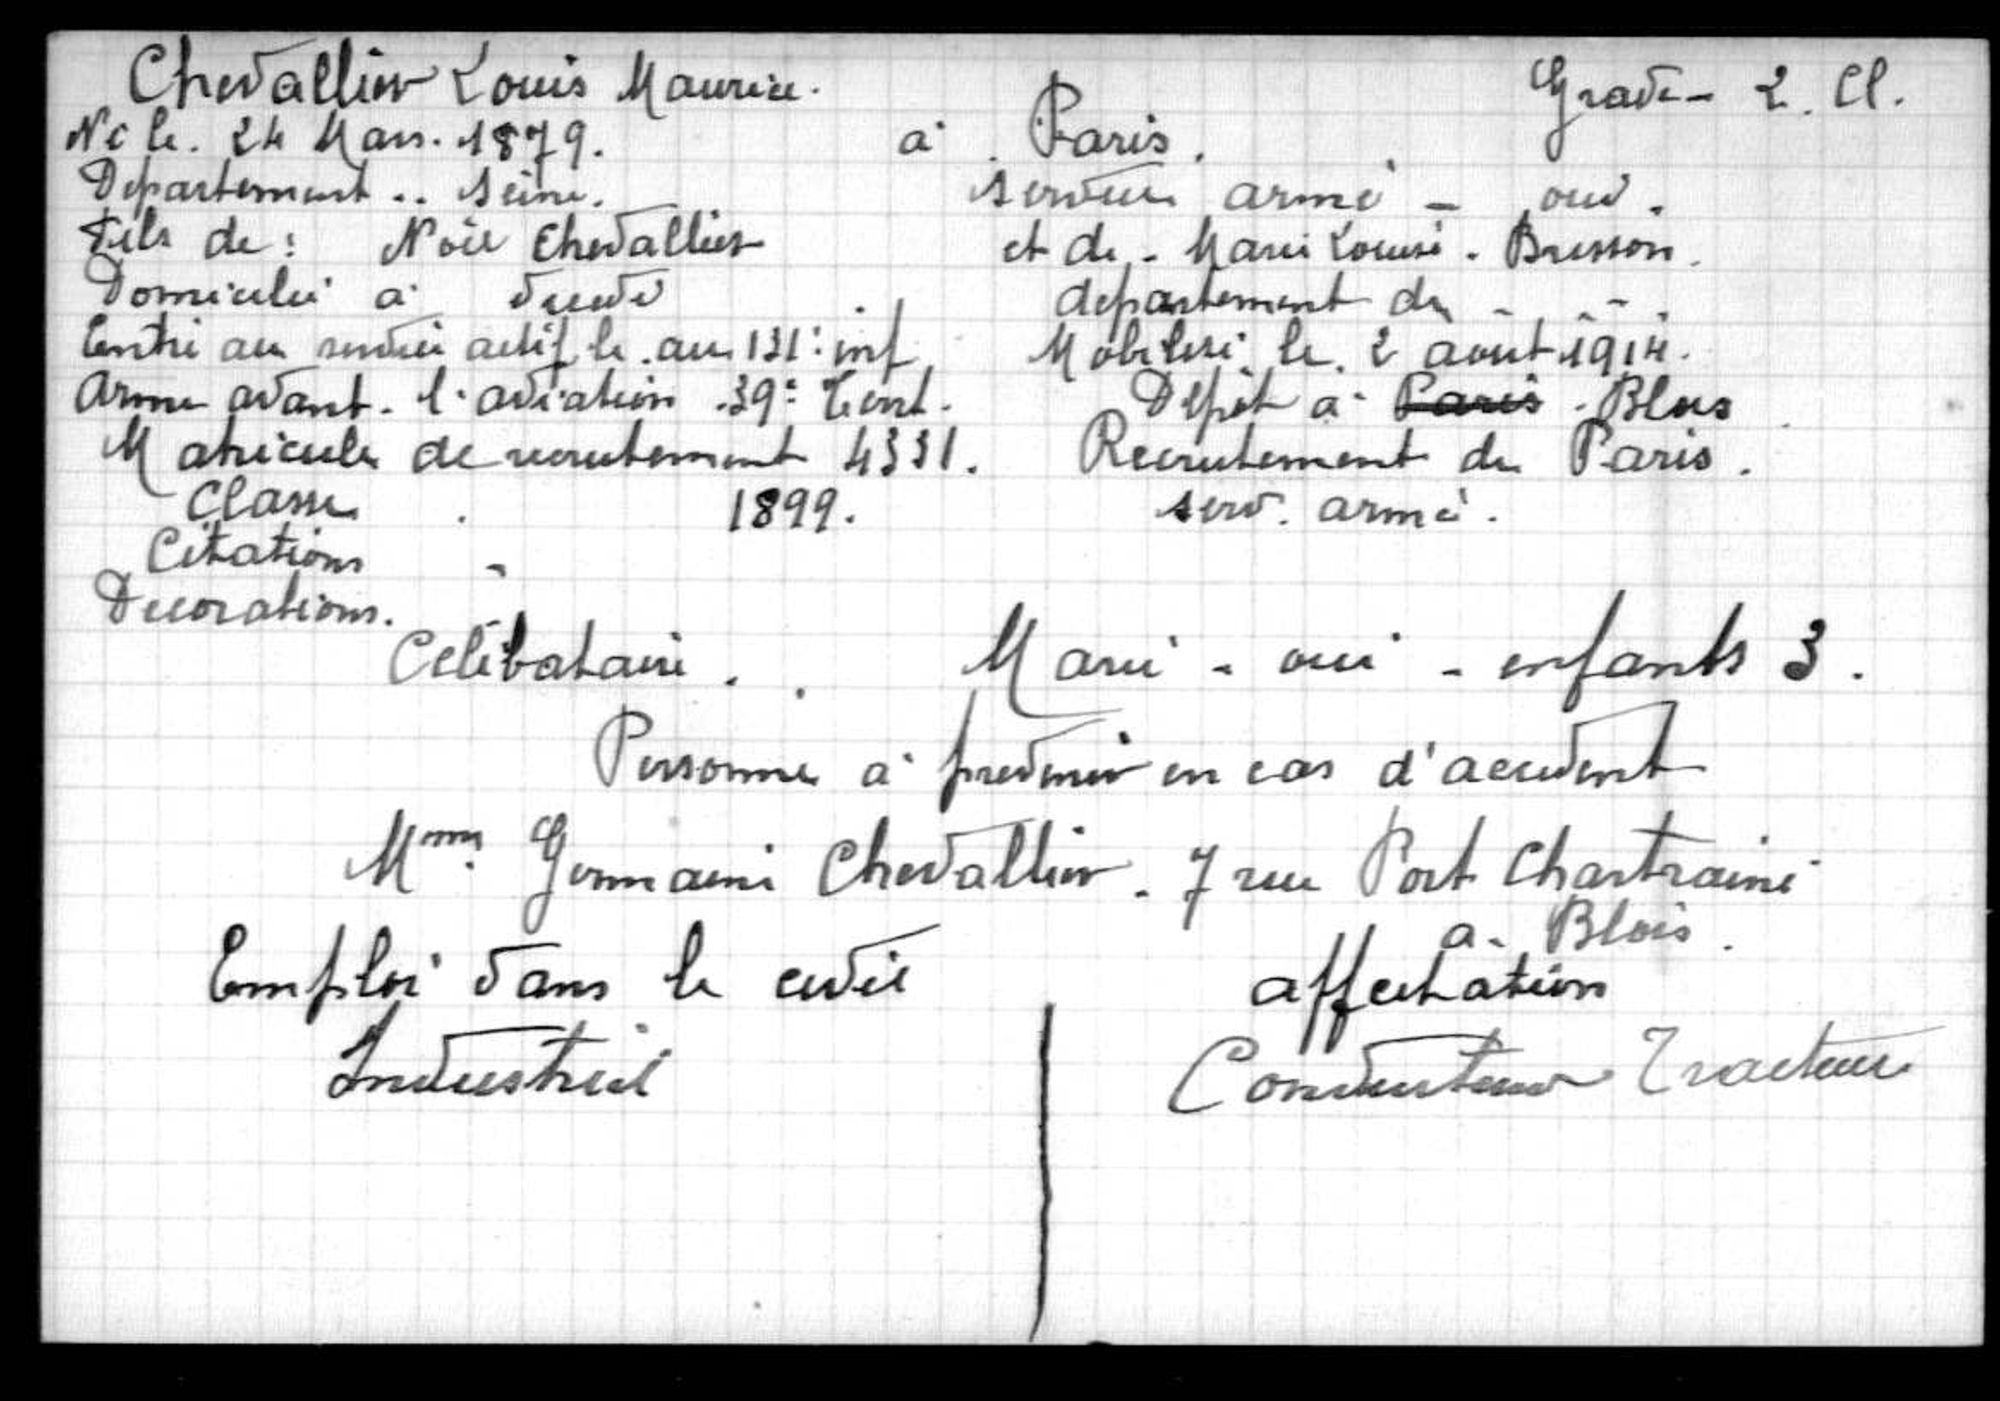 Chevallier Louis Maurice. Grade - 2. Cl.
Né le. 24 Mars. 1879. à Paris.
Departement .. Seine. service armé - oui.
Fils de : Noël Chevallier et de - Marie Louise. Bresson.
Domicilié à département de - - -
Entré au service actif le. au 131e inf Mobilisé le. 2 août 1914.
Arme avant. l'aviation .39e Terrt. Dépôt à Paris. Blois
Matricule de recrutement 4331. Recrutement de Paris.
Classe . 1899. serv. armé.
Citations -
Decorations.
Célibataire . . Marié - oui - enfants 3.
Personne à prévenir en cas d'accident
Mme Germaine Chevallier. 7 rue Port Chartraine
à. Blois.
Emploi dans le civil affectation
Industriel Conducteur Tracteur